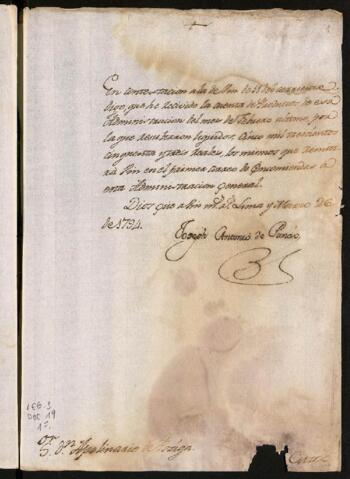 En contestacion a la de Vm. de 11 del corriente
digo, que he recivido la cuenta de productos de esa
Administracion del mes de Febrero ultimo, por
la que resultaron liquidos, Cinco mil trecientos
cinquenta y tres reales, los mismos que remiti
rá Vm en el primer carro de Encomiendas a
esta Administracion general.
Dios gue a Vm ms as. Lima y Marzo 26
de 1794.
Joseph Antonio de Pando
LEG. 3
DOC 19
1 f.
Sr Dn Apolinario de